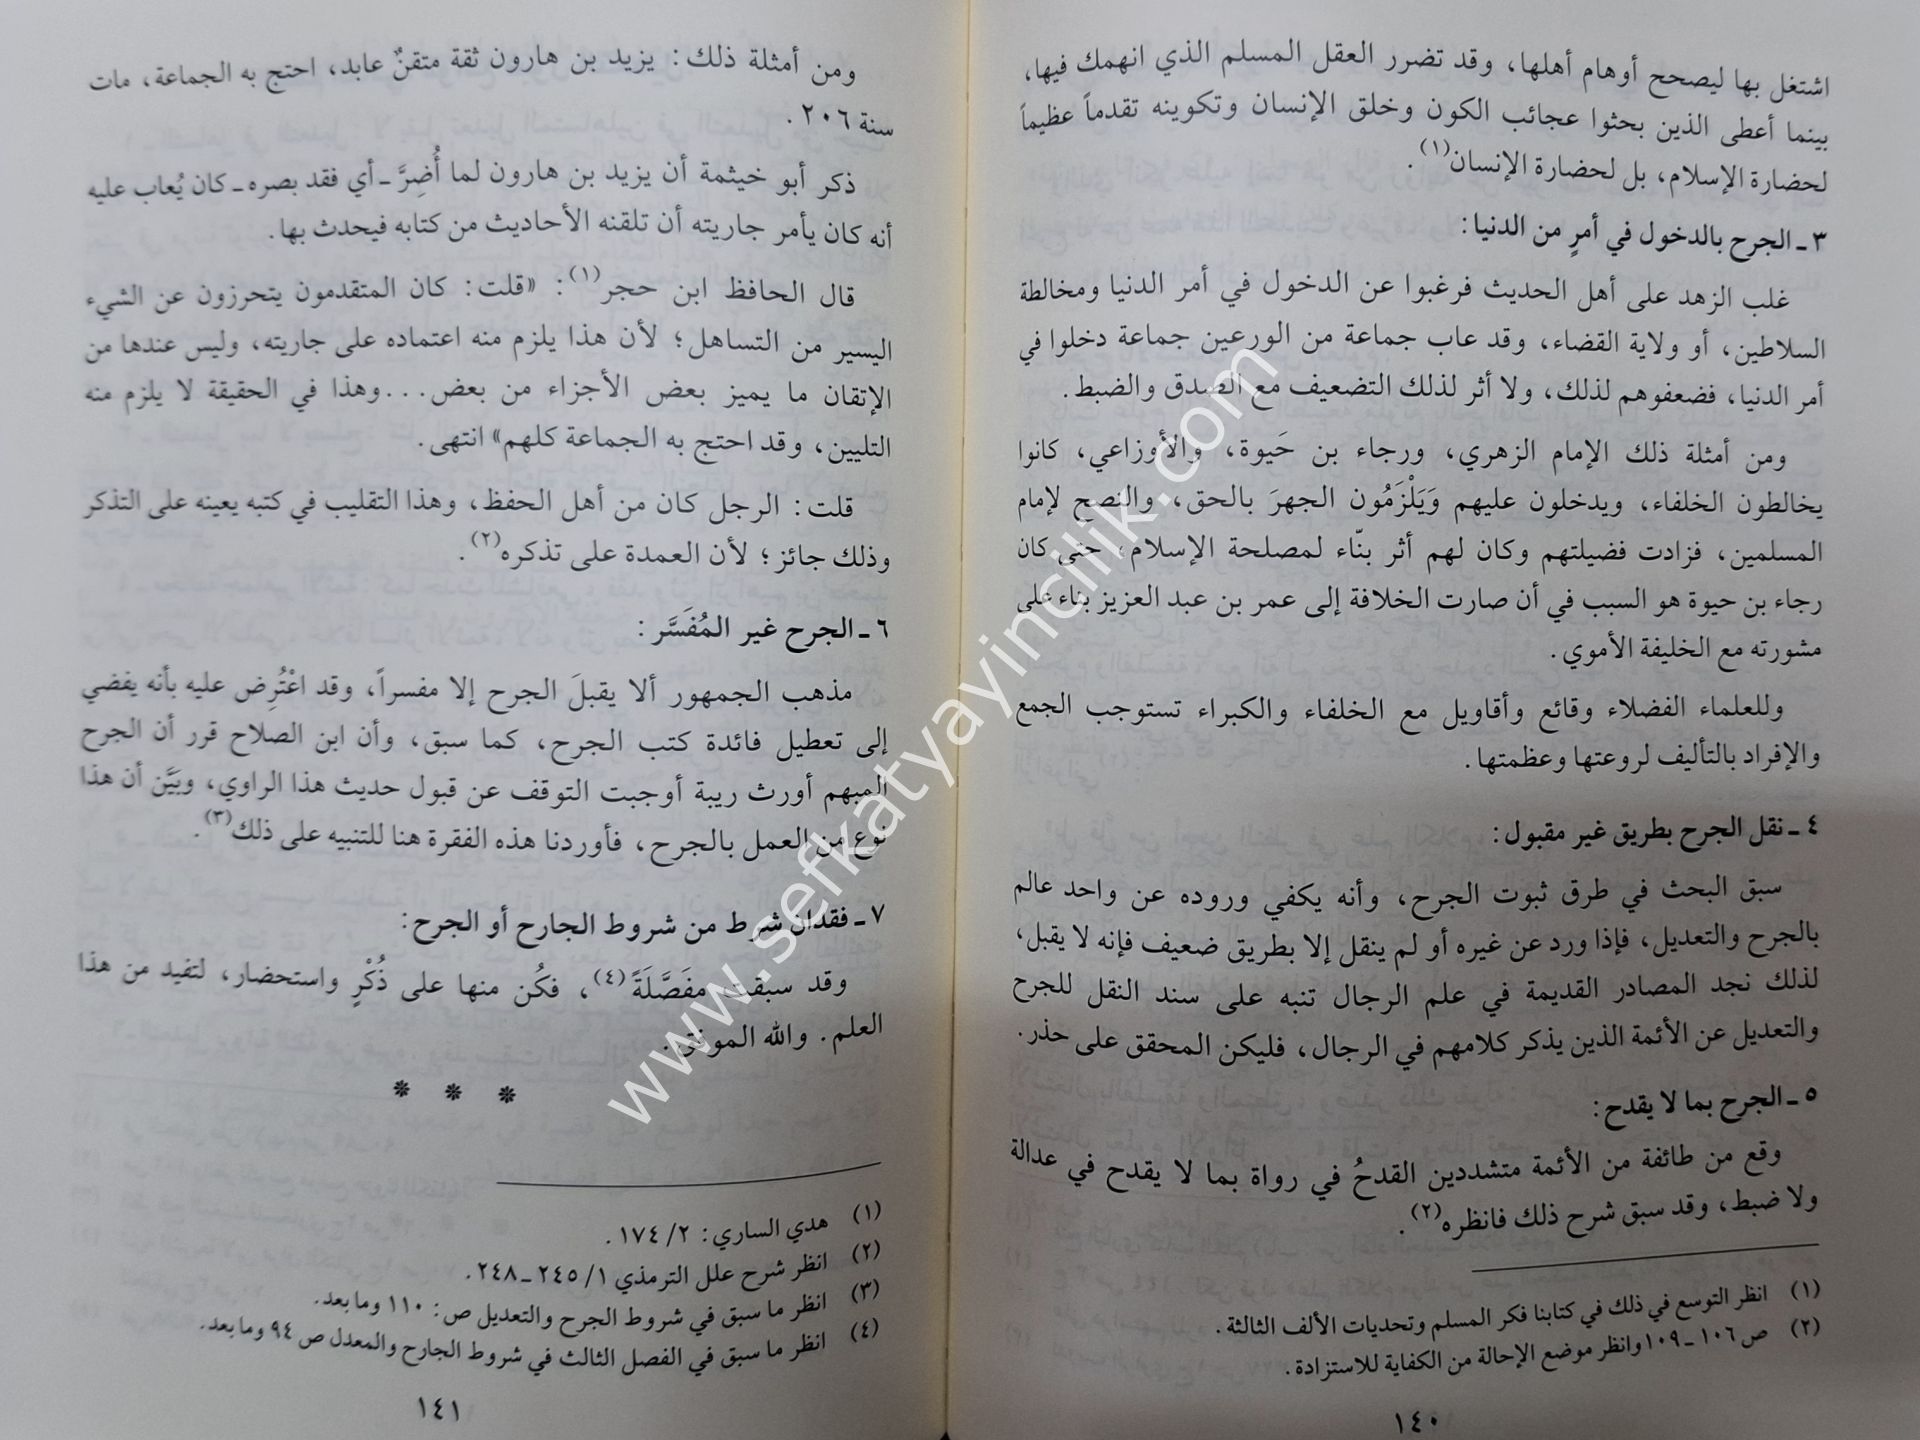 اشتغل بها ليصحح أوهام أهلها، وقد تضرر العقل المسلم الذي انهمك فيها،
بينما أعطى الذين بحثوا عجائب الكون وخلق الإنسان وتكوينه تقدماً عظيماً
لحضارة الإسلام، بل لحضارة الإنسان(١).
٣ ـ الجرح بالدخول في أمرٍ من الدنيا:
غلب الزهد على أهل الحديث فرغبوا عن الدخول في أمر الدنيا ومخالطة
السلاطين، أو ولاية القضاء، وقد عاب جماعة من الورعين جماعة دخلوا في
أمر الدنيا، فضعفوهم لذلك، ولا أثر لذلك التضعيف مع الصدق والضبط.
ومن أمثلة ذلك الإمام الزهري، ورجاء بن حَيوة، والأوزاعي، كانوا
يخالطون الخلفاء، ويدخلون عليهم وَيَلْزَمُون الجهرَ بالحق، والنصح لإمام
المسلمين، فزادت فضيلتهم وكان لهم أثر بنّاء لمصلحة الإسلام، حتى كان
رجاء بن حيوة هو السبب في أن صارت الخلافة إلى عمر بن عبد العزيز بناء على
مشورته مع الخليفة الأموي.
وللعلماء الفضلاء وقائع وأقاويل مع الخلفاء والكبراء تستوجب الجمع
والإفراد بالتأليف لروعتها وعظمتها.
٤ ـ نقل الجرح بطريق غير مقبول:
سبق البحث في طرق ثبوت الجرح، وأنه يكفي وروده عن واحد عالم
بالجرح والتعديل، فإذا ورد عن غيره أو لم ينقل إلا بطريق ضعيف فإنه لا يقبل،
لذلك نجد المصادر القديمة في علم الرجال تنبه على سند النقل للجرح
والتعديل عن الأئمة الذين يذكر كلامهم في الرجال، فليكن المحقق على حذر.
٥ ـ الجرح بما لا يقدح:
وقع من طائفة من الأئمة متشددين القدحُ في رواة بما لا يقدح في عدالة
ولا ضبط، وقد سبق شرح ذلك فانظره(٢).
(١) انظر التوسع في ذلك في كتابنا فكر المسلم وتحديات الألف الثالثة.
(٢) ص ١٠٦ ـ ١٠٩ وانظر موضع الإحالة من الكفاية للاستزادة.
١٤٠
ومن أمثلة ذلك: يزيد بن هارون ثقة متقنٌ عابد، احتج به الجماعة، مات
سنة ٢٠٦.
ذكر أبو خيثمة أن يزيد بن هارون لما أُضِرَّ ـ أي فقد بصره ـ كان يُعاب عليه
أنه كان يأمر جاريته أن تلقنه الأحاديث من كتابه فيحدث بها.
قال الحافظ ابن حجر(١): «قلت: كان المتقدمون يتحرزون عن الشيء
اليسير من التساهل؛ لأن هذا يلزم منه اعتماده على جاريته، وليس عندها من
الإتقان ما يميز بعض الأجزاء من بعض... وهذا في الحقيقة لا يلزم منه
التليين، وقد احتج به الجماعة كلهم» انتهى.
قلت: الرجل كان من أهل الحفظ، وهذا التقليب في كتبه يعينه على التذكر
وذلك جائز؛ لأن العمدة على تذكره(٢).
٦ ـ الجرح غير المُفَسَّر:
مذهب الجمهور ألا يقبلَ الجرح إلا مفسراً، وقد اعْتُرِض عليه بأنه يفضي
إلى تعطيل فائدة كتب الجرح، كما سبق، وأن ابن الصلاح قرر أن الجرح
المبهم أورث ريبة أوجبت التوقف عن قبول حديث هذا الراوي، وبيَّن أن هذا
نوع من العمل بالجرح، فأوردنا هذه الفقرة هنا للتنبيه على ذلك(٣).
٧ ـ فقدان شرط من شروط الجارح أو الجرح:
وقد سبقت مفَصَّلَةً(٤)، فكُن منها على ذُكْرٍ واستحضار، لتفيد من هذا
العلم. والله الموفق.
* * *
(١) هدي الساري: ٢/ ١٧٤.
(٢) انظر شرح علل الترمذي ١/ ٢٤٥ ـ ٢٤٨.
(٣) انظر ما سبق في شروط الجرح والتعديل ص: ١١٠ وما بعد.
(٤) انظر ما سبق في الفصل الثالث في شروط الجارح والمعدل ص ٩٤ وما بعد.
١٤١
www.sefkatyayincilik.com